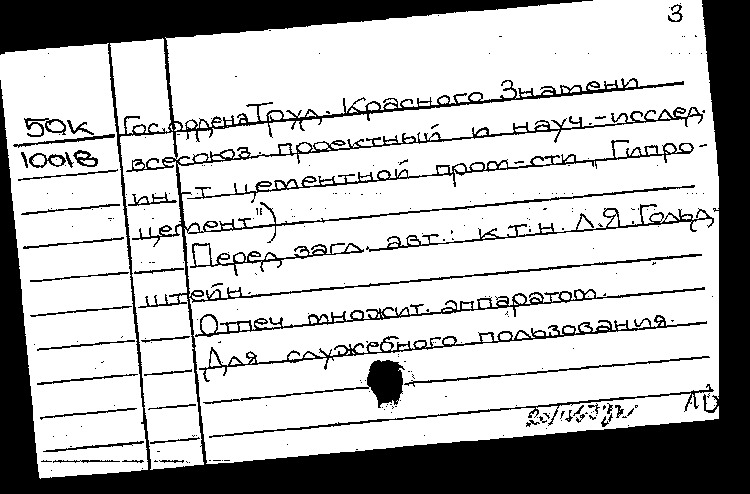 3
50К Гос.ордена Труд. Красного Знамени
10018 всесоюз. проектный и науч.-исслед.
ин-т цементной пром-сти „Гипро-
цемент")
Перед загл. авт.: к.т.н. Л.Я.Гольд-
штейн.
Отпеч. множит. аппаратом.
Для служебного пользования.